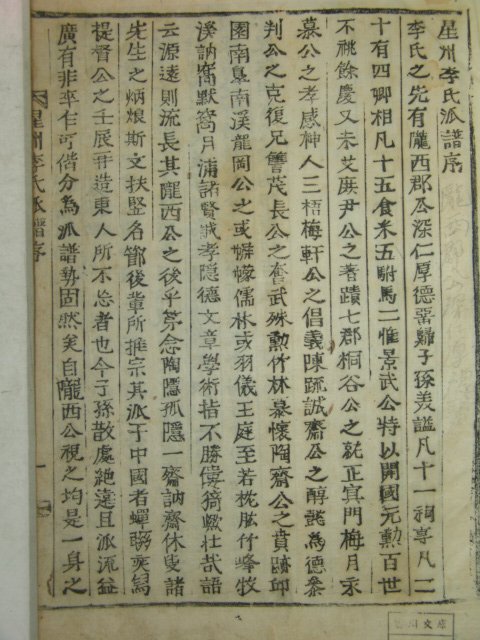 星州李氏派譜序
李氏之先有隴西郡公深仁厚德畱歸子孫美諡凡十一祠享凡二
十有四卿相凡十五食米五駙馬二惟景武公特以開國元勳百世
不祧餘慶又未艾厥尹公之著蹟七郡桐谷公之就正宜門梅月亦
慕公之孝感神人三梧梅軒公之倡義陳疏誠齋公之醇懿為德叅
判公之克復兄讐茂長公之奮武殊勲竹林慕懷陶齋公之賁跡邱
園南臯南溪龍岡公之或幪儒林或羽儀王庭至若枕肱竹峰牧
溪訥窩默窩月浦諸賢誠孝隱德文章學術指不勝僂猗歟壯哉語
云源遠則流長其隴西公之後乎第念陶隱孤隱一齋訥齋休叟諸
先生之炳烺斯文扶竪名節後軰所推宗其派于中國者蟬聯奕舄
提督公之壬辰再造東人所不忘者也今子孫散處絶遠且派流益
廣有非卒乍可偕分為派譜勢固然矣自隴西公視之均是一身之
星州李氏派譜序
一